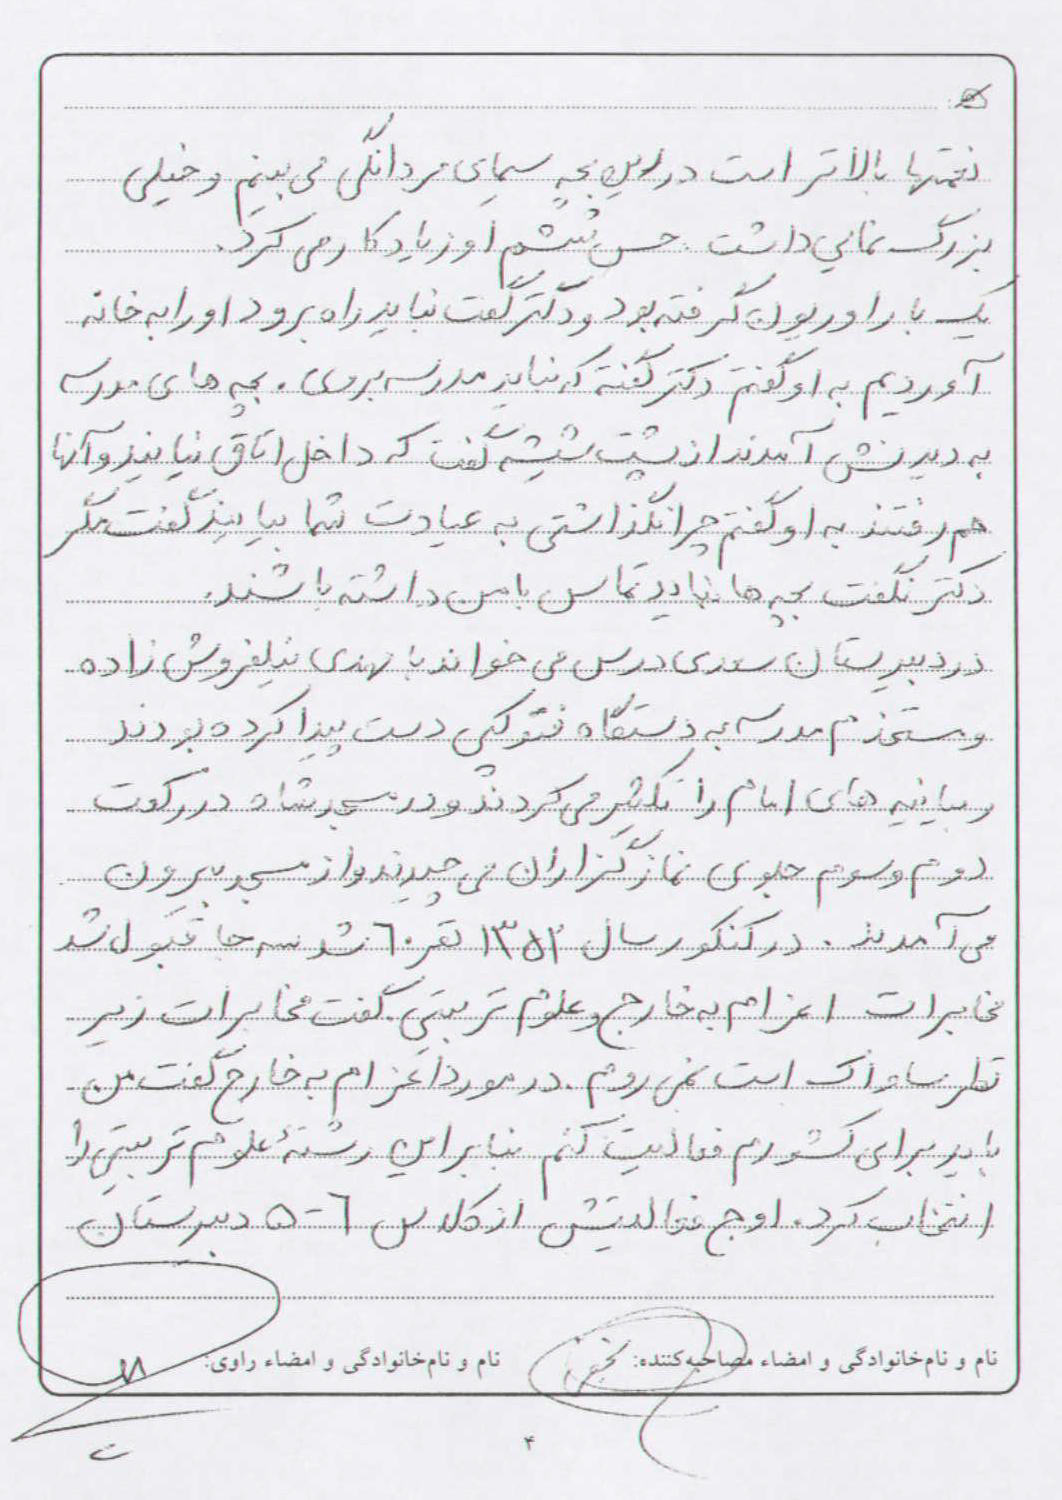 نعمتها بالاتر است در این بچه سیمای مردانگی می بینم و خیلی
بزرگ نمایی داشت. حس ششم او زیاد کار می کرد.
یک بار اوریون گرفته بود و دکتر گفت نباید راه برود او را به خانه
آوردیم به او گفتم دکتر گفته که نباید مدرسه بروی. بچه های مدرسه
به دیدنش آمدند از پشت شیشه گفت که داخل اتاق نیایید و آنها
هم رفتند به او گفتم چرا نگذاشتی به عیادت شما بیایند گفت مگر
دکتر نگفت بچه ها نباید تماس با من داشته باشند.
در دبیرستان سعدی درس می خواند با مهدی نیلفروش زاده
و مستخدم مدرسه به دستگاه فتوکپی دست پیدا کرده بودند
و بیانیه های امام را تکثیر می کردند و در مسجد شاه در رکعت
دوم و سوم جلوی نمازگزاران می چیدند و از مسجد بیرون
می آمدند. در کنکور سال ۱۳۵۲ نفر ۶۰ شد سه جا قبول شد
مخابرات اعزام به خارج و علوم تربیتی. گفت مخابرات زیر
نظر ساواک است نمی روم. در مورد اعزام به خارج گفت من
باید برای کشورم فعالیت کنم بنابراین رشتهٔ علوم تربیتی را
انتخاب کرد. اوج فعالیتش از کلاس ۶-۵ دبیرستان
نام و نام‌خانوادگی و امضاء مصاحبه‌کننده: نام و نام‌خانوادگی و امضاء راوی:
۴